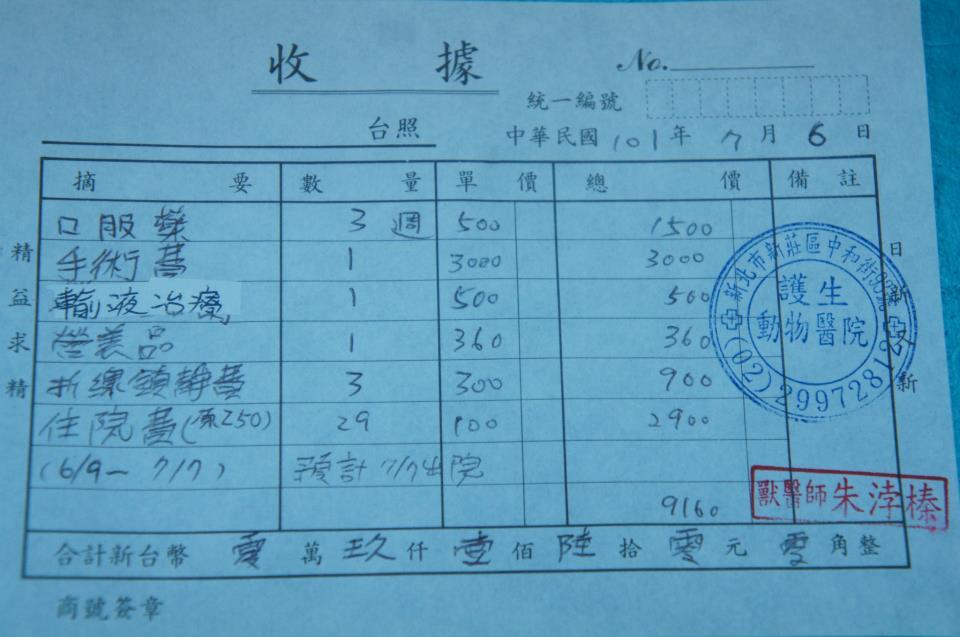 收據
No.
統一編號
台照
中華民國 101 年 7 月 6 日
摘要 數量 單價 總價 備註
口服藥 3 週 500 1500
手術費 1 3000 3000
輸液治療 1 500 500
營養品 1 360 360
拆線鎮靜費 3 300 900
住院費(原250) 29 100 2900
(6/9~7/7) 預計7/7出院
9160
合計新台幣 零萬玖仟壹佰陸拾零元零角整
商號簽章
精益求精
日新又新
新北市新莊區中和街
護生
動物醫院
(02)29972819
獸醫師朱浡榛